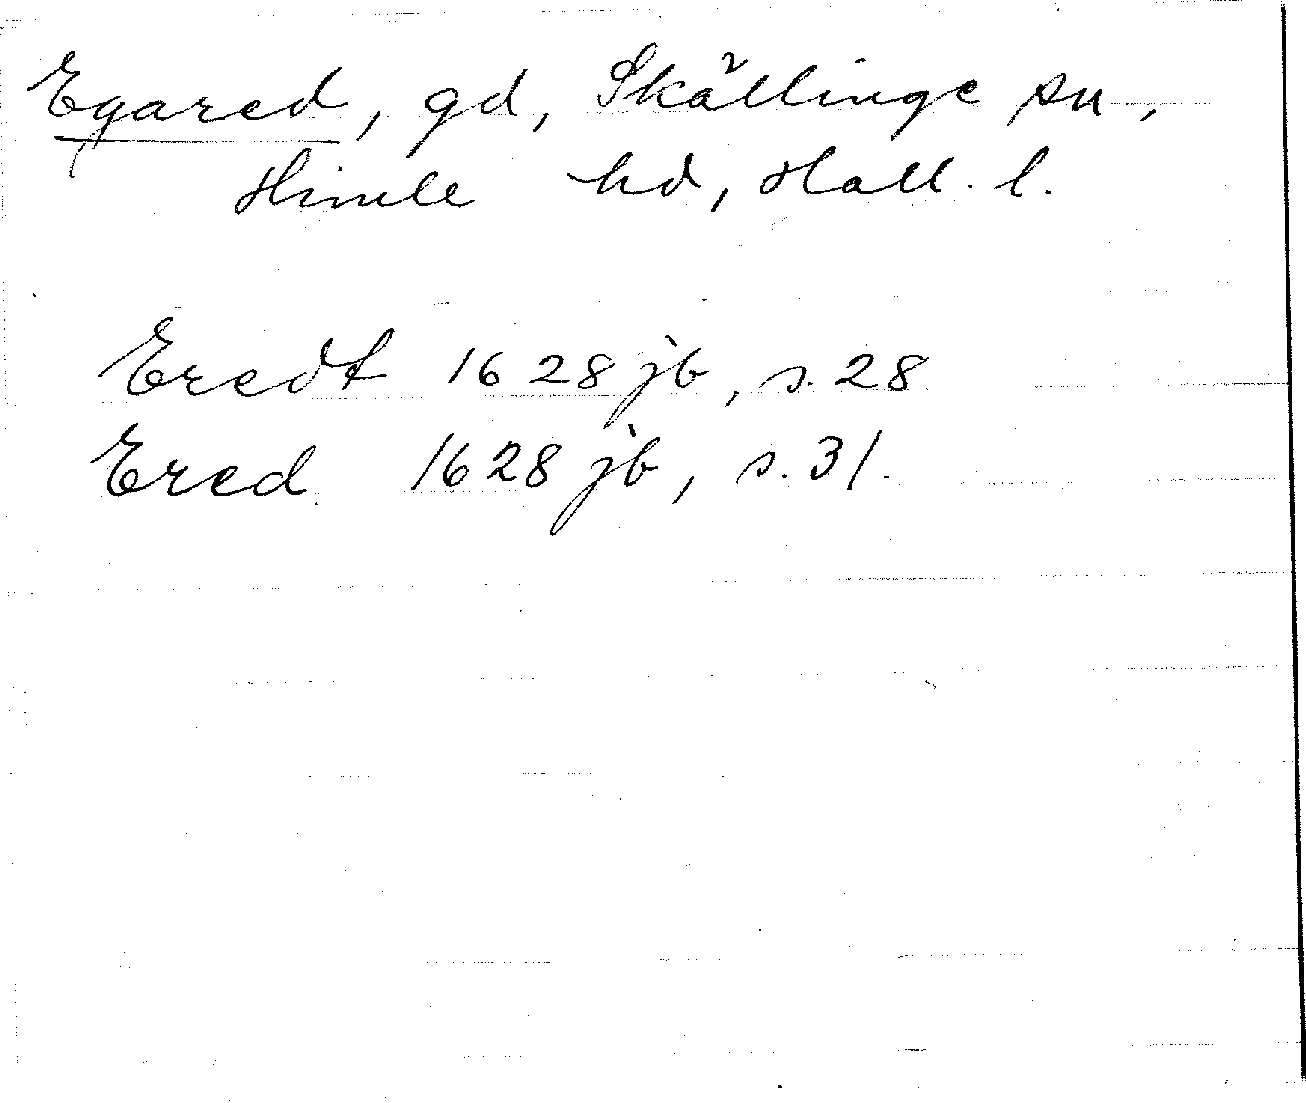 Egared, gd, Skällinge sn,
Himle hd, Hall. l.
Eredt 1628 jb, s. 28
Ered 1628 jb, s. 31.